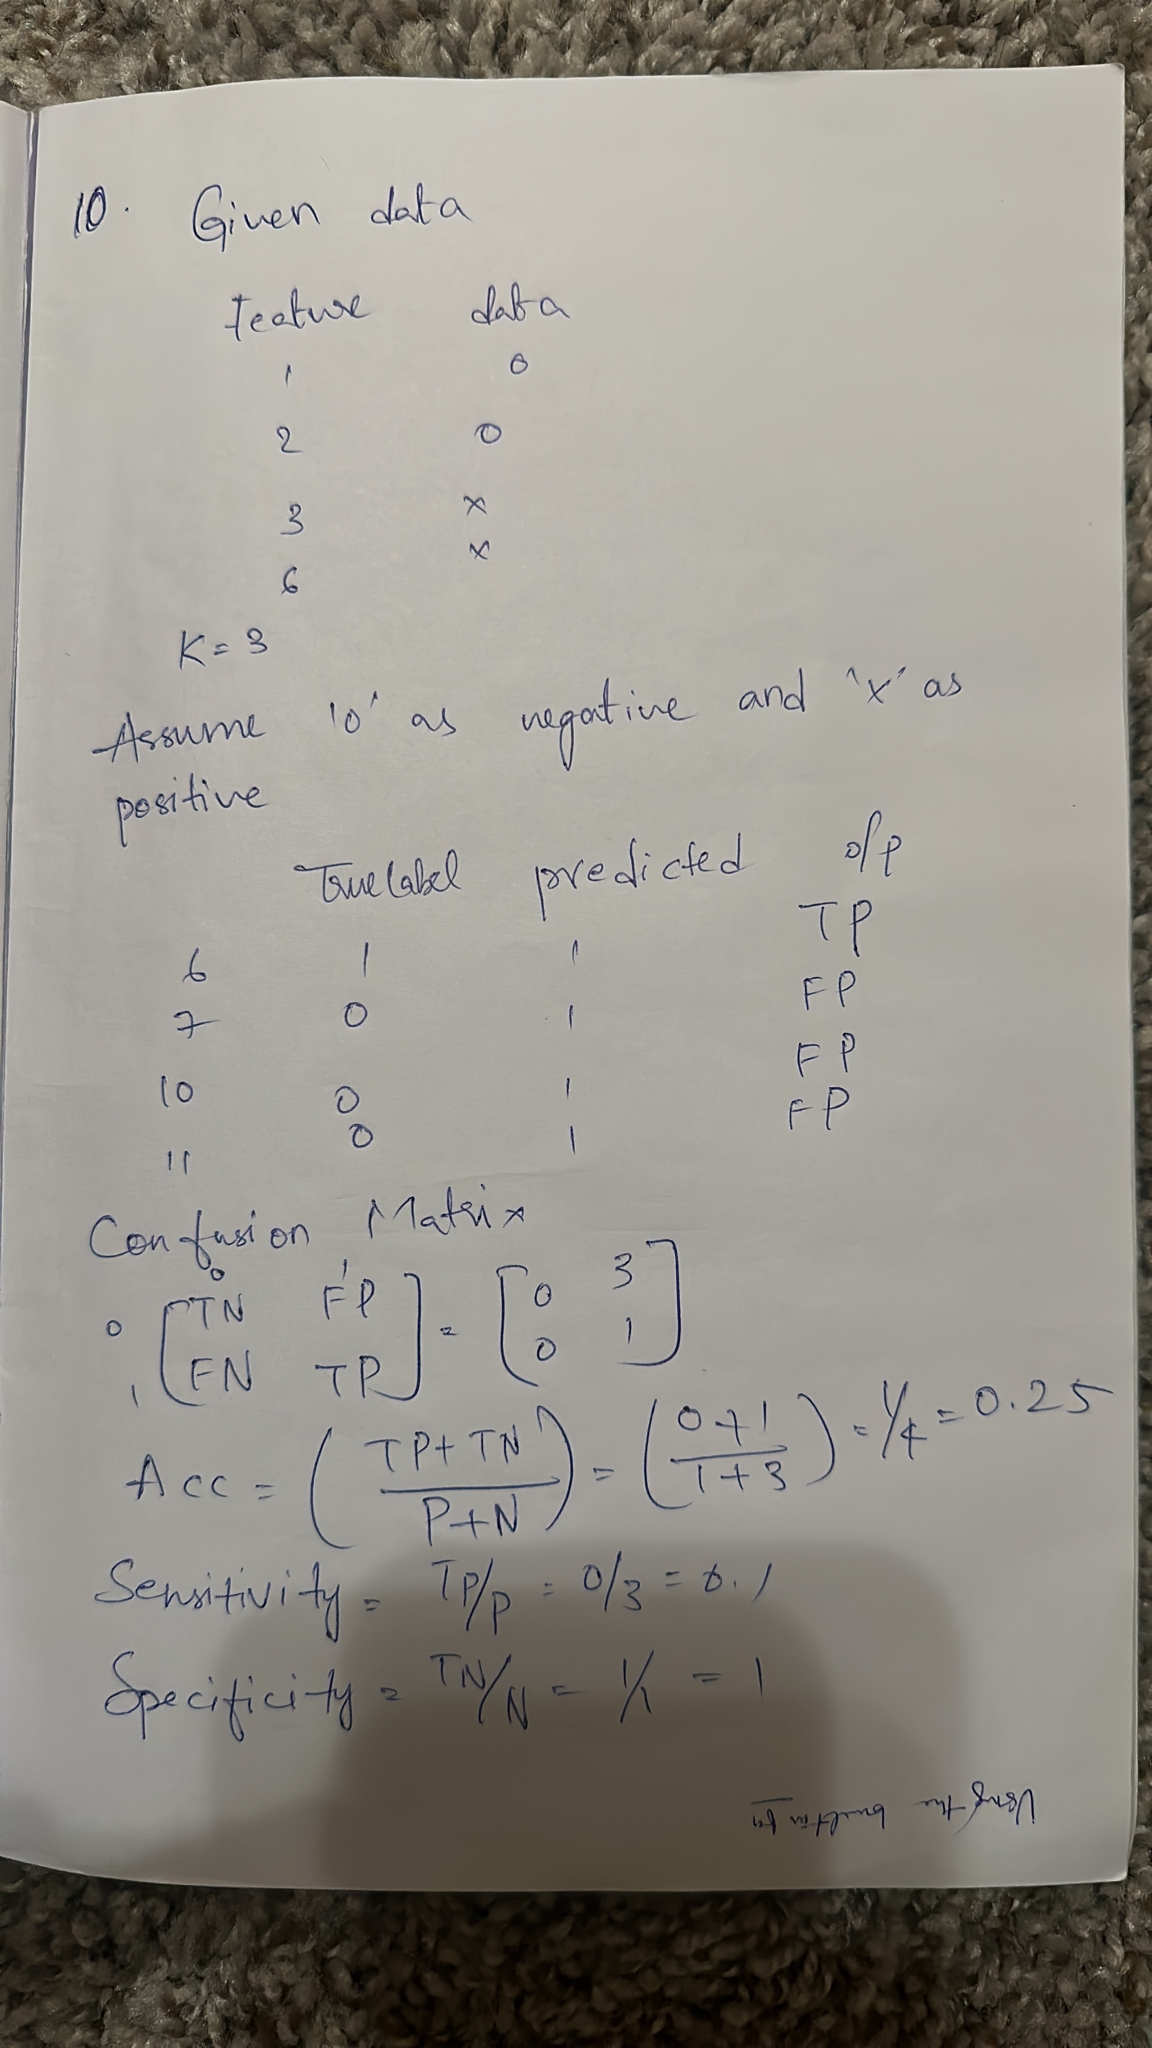 10. Given data
Feature data
1 0
2 0
3 x
6 x
K = 3
Assume '0' as negative and 'x' as
positive
True label predicted o/p
6 1 1 TP
7 0 1 FP
10 0 1 FP
11 0 1 FP
Confusion Matrix
0 1
0 [TN FP] = [0 3]
1 [FN TP] [0 1]
Acc = (TP+TN / P+N) = (0+1 / 1+3) = 1/4 = 0.25
Sensitivity = TP/P = 0/3 = 0.1
Specificity = TN/N = 1/1 = 1
Using the builtin fn